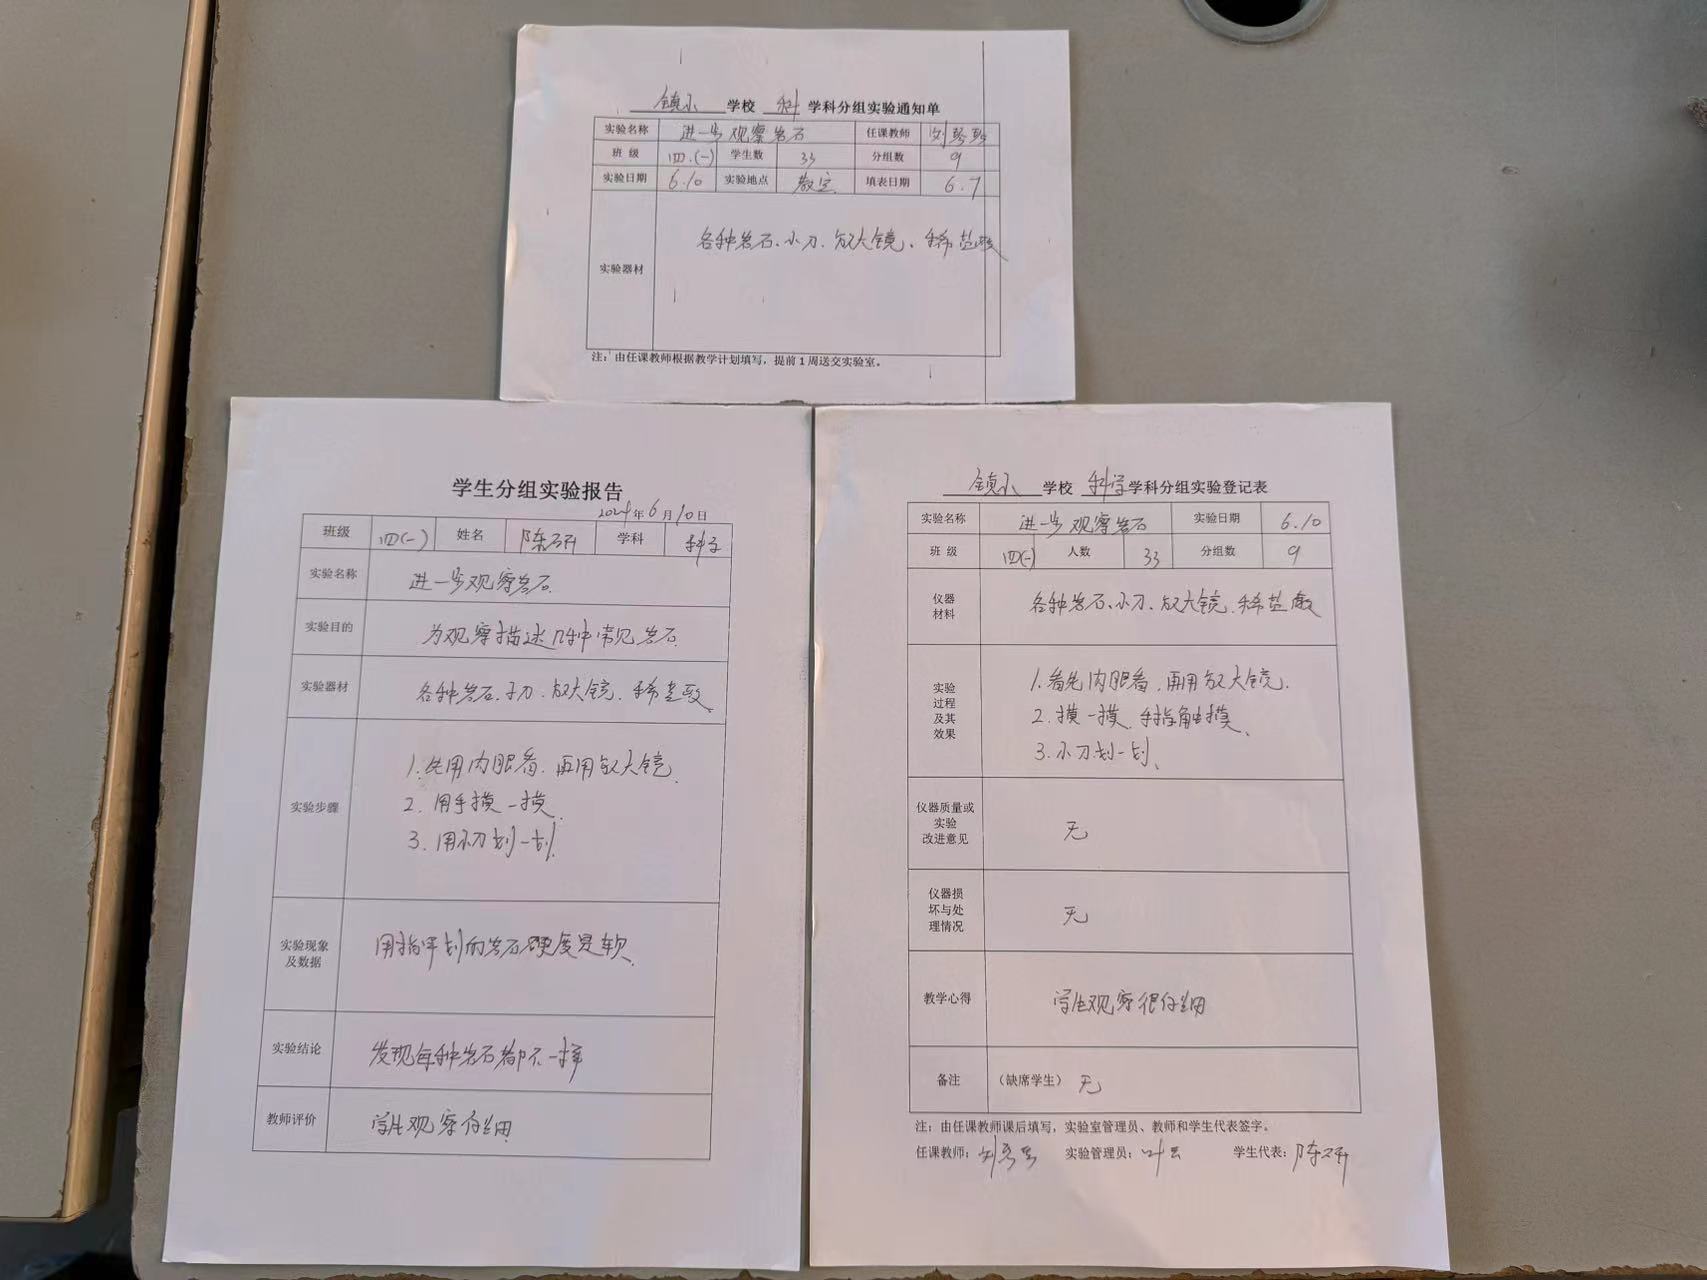 镇小 学校 科 学科分组实验通知单
实验名称 进一步观察岩石 任课教师 刘
班 级 四.(一) 学生数 33 分组数 9
实验日期 6.10 实验地点 教室 填表日期 6.7
实验器材 各种岩石、小刀、放大镜、稀盐酸
注：由任课教师根据教学计划填写，提前 1 周送交实验室。
学生分组实验报告
2024年6月10日
班级 四(一) 姓名 陈研 学科 科学
实验名称 进一步观察岩石
实验目的 为观察描述几种常见岩石
实验器材 各种岩石、小刀、放大镜、稀盐酸
实验步骤
1.先用肉眼看、再用放大镜
2. 用手摸一摸
3. 用小刀划一划
实验现象
及数据
用指甲划的岩石硬度是软
实验结论 发现每种岩石都不一样
教师评价 学生观察仔细
镇小 学校 科学 学科分组实验登记表
实验名称 进一步观察岩石 实验日期 6.10
班 级 四(一) 人数 33 分组数 9
仪器
材料
各种岩石、小刀、放大镜、稀盐酸
实验
过程
及其
效果
1.看先肉眼看、再用放大镜.
2. 摸一摸、手指触摸、
3. 小刀划一划、
仪器质量或
实验
改进意见
无
仪器损
坏与处
理情况
无
教学心得 学生观察很仔细
备注 （缺席学生） 无
注：由任课教师课后填写，实验室管理员、教师和学生代表签字。
任课教师：刘 实验管理员：叶 学生代表：陈研